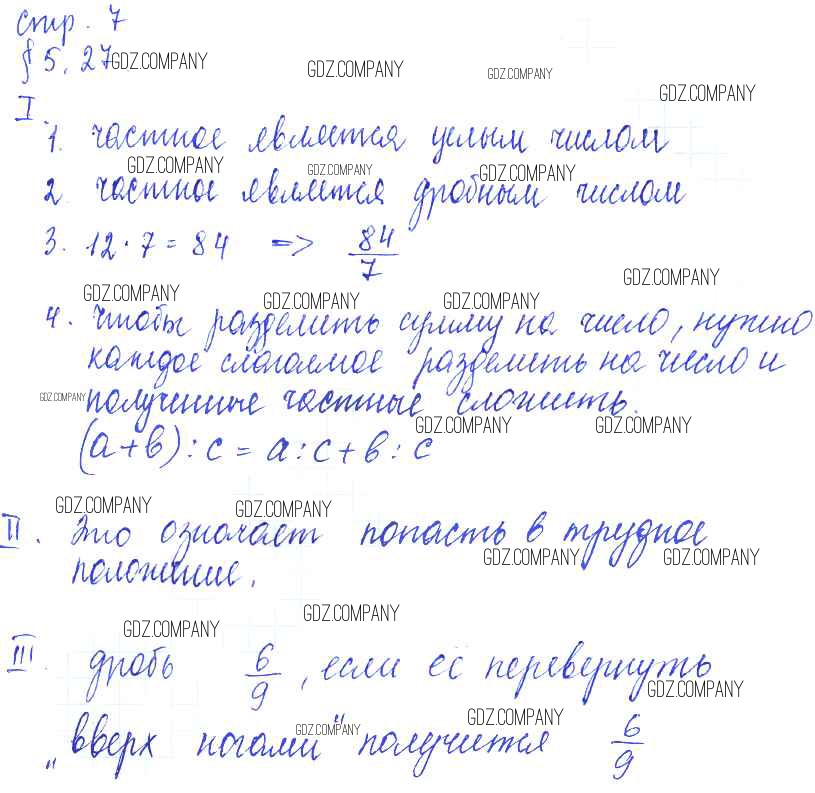 стр. 7
§ 5. 27 GDZ.COMPANY GDZ.COMPANY GDZ.COMPANY GDZ.COMPANY
I.
1. частное является целым числом
GDZ.COMPANY GDZ.COMPANY GDZ.COMPANY
2 частное является дробным числом
3. 12 · 7 = 84 => 84/7
GDZ.COMPANY
GDZ.COMPANY GDZ.COMPANY GDZ.COMPANY
4. Чтобы разделить сумму на число, нужно
каждое слагаемое разделить на число и
GDZ.COMPANY полученные частные сложить.
GDZ.COMPANY GDZ.COMPANY
(а+в) : с = а : с + в : с
GDZ.COMPANY GDZ.COMPANY
II. Это означает попасть в трудное
GDZ.COMPANY GDZ.COMPANY
положение.
GDZ.COMPANY GDZ.COMPANY
III. дробь 6/9, если её перевернуть
GDZ.COMPANY
„вверх ногами" получится 6/9
GDZ.COMPANY GDZ.COMPANY